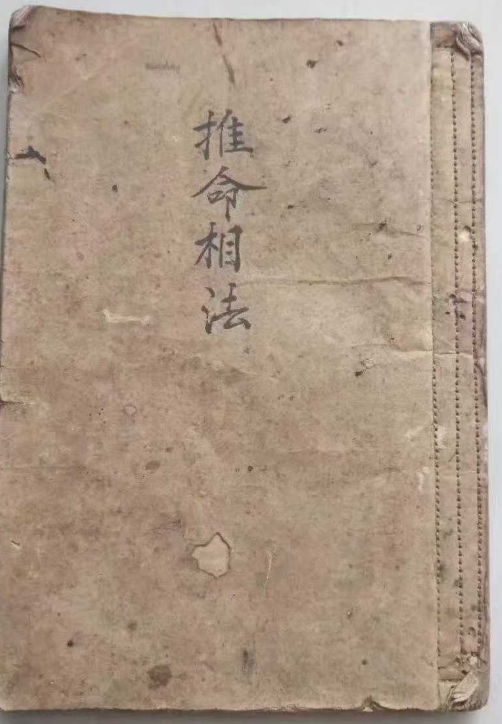 推命相法